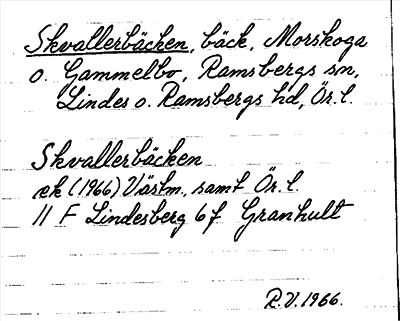 Skvallerbäcken, bäck, Morskoga
o. Gammelbo, Ramsbergs sn,
Lindes o. Ramsbergs hd, Ör. l.
Skvallerbäcken
ek (1966) Västm., samt Ör. l.
11 F Lindesberg 6f Granhult
R.V. 1966.